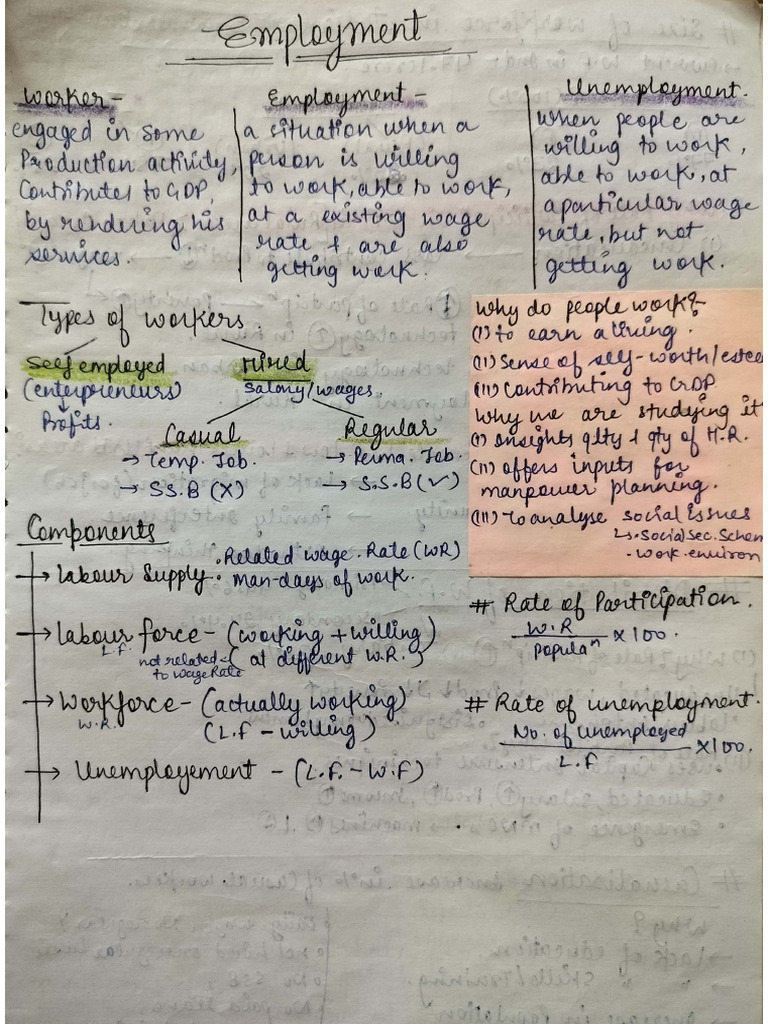 Employment
Worker -
engaged in some
Production activity,
Contributes to GDP,
by rendering his
services.
Employment -
a situation when a
person is willing
to work, able to work,
at a existing wage
rate & are also
getting work.
Unemployment.
When people are
willing to work,
able to work, at
a particular wage
rate, but not
getting work.
Types of workers.
Self employed
(enterpreneurs)
↓
Profits.
Hired
Salary/wages.
Casual
→ Temp. Job.
→ SS.B (X)
Regular
→ Perma. Job.
→ S.S.B (✓)
Why do people work?
(I) to earn a living.
(II) Sense of self-worth/estee
(III) Contributing to GDP
Why we are studying it
(I) Insights qlty & qty of H.R.
(II) offers inputs for
manpower planning.
(III) To analyse social issues
↳ • Social Sec. Schem
• work. environ
Components
→ Labour Supply • Related wage Rate (WR)
• Man-days of work.
→ Labour force - (working + willing)
L.F. not related to wage Rate (at different W.R.)
→ Workforce - (actually working)
W.R. (L.F - willing)
→ Unemployement - (L.F. - W.F)
# Rate of Participation.
W.R / Populaⁿ × 100.
# Rate of unemployment.
No. of unemployed / L.F × 100.